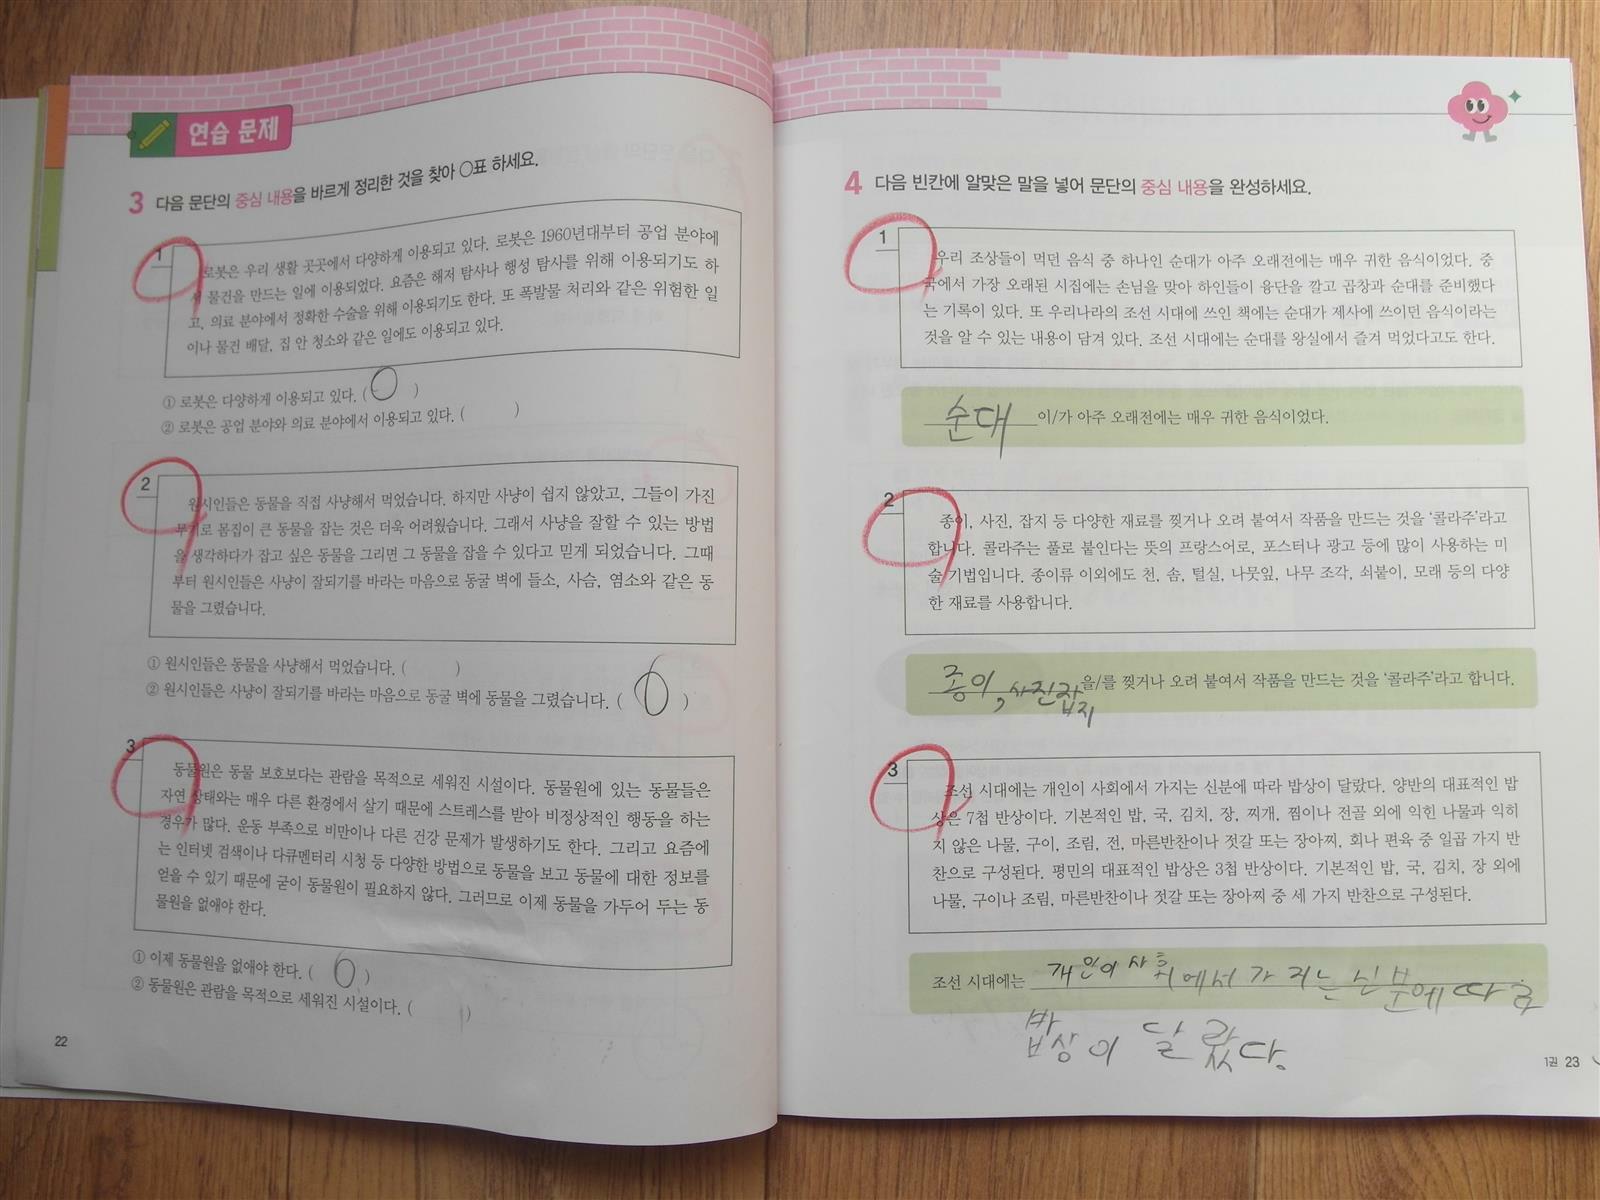 연습 문제
3 다음 문단의 중심 내용을 바르게 정리한 것을 찾아 ○표 하세요.
1
로봇은 우리 생활 곳곳에서 다양하게 이용되고 있다. 로봇은 1960년대부터 공업 분야에
서 물건을 만드는 일에 이용되었다. 요즘은 해저 탐사나 행성 탐사를 위해 이용되기도 하
고, 의료 분야에서 정확한 수술을 위해 이용되기도 한다. 또 폭발물 처리와 같은 위험한 일
이나 물건 배달, 집 안 청소와 같은 일에도 이용되고 있다.
① 로봇은 다양하게 이용되고 있다. ( O )
② 로봇은 공업 분야와 의료 분야에서 이용되고 있다. ( )
2
원시인들은 동물을 직접 사냥해서 먹었습니다. 하지만 사냥이 쉽지 않았고, 그들이 가진
무기로 몸집이 큰 동물을 잡는 것은 더욱 어려웠습니다. 그래서 사냥을 잘할 수 있는 방법
을 생각하다가 잡고 싶은 동물을 그리면 그 동물을 잡을 수 있다고 믿게 되었습니다. 그때
부터 원시인들은 사냥이 잘되기를 바라는 마음으로 동굴 벽에 들소, 사슴, 염소와 같은 동
물을 그렸습니다.
① 원시인들은 동물을 사냥해서 먹었습니다. ( )
② 원시인들은 사냥이 잘되기를 바라는 마음으로 동굴 벽에 동물을 그렸습니다. ( O )
3
동물원은 동물 보호보다는 관람을 목적으로 세워진 시설이다. 동물원에 있는 동물들은
자연 상태와는 매우 다른 환경에서 살기 때문에 스트레스를 받아 비정상적인 행동을 하는
경우가 많다. 운동 부족으로 비만이나 다른 건강 문제가 발생하기도 한다. 그리고 요즘에
는 인터넷 검색이나 다큐멘터리 시청 등 다양한 방법으로 동물을 보고 동물에 대한 정보를
얻을 수 있기 때문에 굳이 동물원이 필요하지 않다. 그러므로 이제 동물을 가두어 두는 동
물원을 없애야 한다.
① 이제 동물원을 없애야 한다. ( O )
② 동물원은 관람을 목적으로 세워진 시설이다. ( )
22
4 다음 빈칸에 알맞은 말을 넣어 문단의 중심 내용을 완성하세요.
1
우리 조상들이 먹던 음식 중 하나인 순대가 아주 오래전에는 매우 귀한 음식이었다. 중
국에서 가장 오래된 시집에는 손님을 맞아 하인들이 융단을 깔고 곱창과 순대를 준비했다
는 기록이 있다. 또 우리나라의 조선 시대에 쓰인 책에는 순대가 제사에 쓰이던 음식이라는
것을 알 수 있는 내용이 담겨 있다. 조선 시대에는 순대를 왕실에서 즐겨 먹었다고도 한다.
순대 이/가 아주 오래전에는 매우 귀한 음식이었다.
2
종이, 사진, 잡지 등 다양한 재료를 찢거나 오려 붙여서 작품을 만드는 것을 ‘콜라주’라고
합니다. 콜라주는 풀로 붙인다는 뜻의 프랑스어로, 포스터나 광고 등에 많이 사용하는 미
술 기법입니다. 종이류 이외에도 천, 솜, 털실, 나뭇잎, 나무 조각, 쇠붙이, 모래 등의 다양
한 재료를 사용합니다.
종이, 사진잡지 을/를 찢거나 오려 붙여서 작품을 만드는 것을 ‘콜라주’라고 합니다.
3
조선 시대에는 개인이 사회에서 가지는 신분에 따라 밥상이 달랐다. 양반의 대표적인 밥
상은 7첩 반상이다. 기본적인 밥, 국, 김치, 장, 찌개, 찜이나 전골 외에 익힌 나물과 익히
지 않은 나물, 구이, 조림, 전, 마른반찬이나 젓갈 또는 장아찌, 회나 편육 중 일곱 가지 반
찬으로 구성된다. 평민의 대표적인 밥상은 3첩 반상이다. 기본적인 밥, 국, 김치, 장 외에
나물, 구이나 조림, 마른반찬이나 젓갈 또는 장아찌 중 세 가지 반찬으로 구성된다.
조선 시대에는 개인이 사회에서 가지는 신분에 따라
밥상이 달랐다.
1권 23